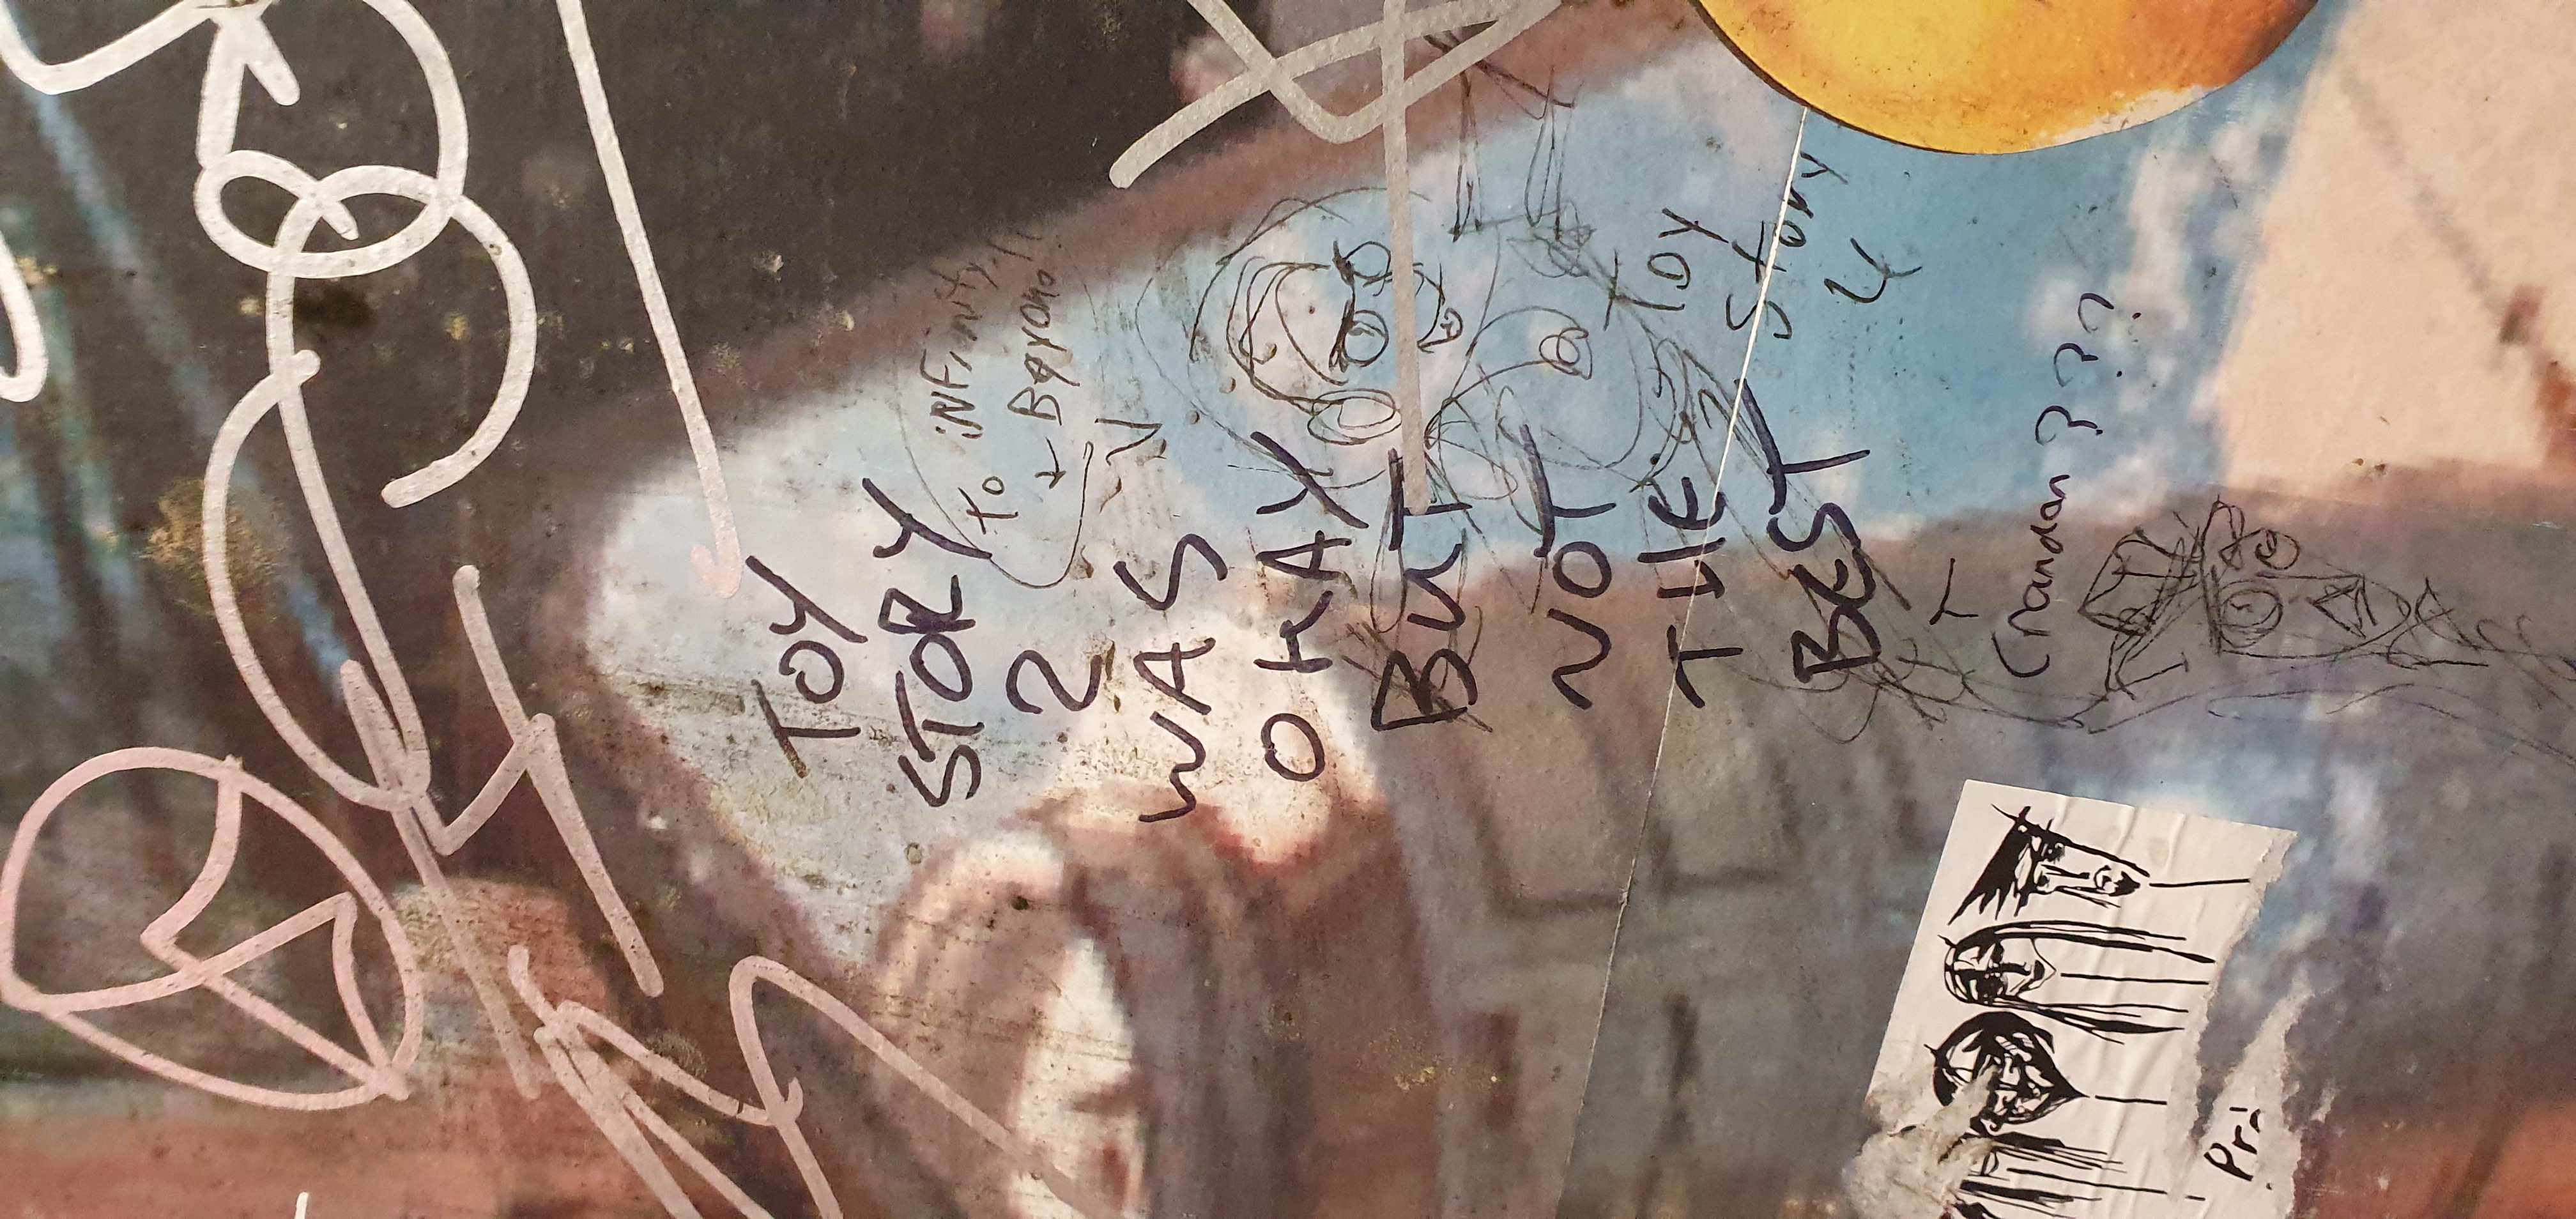 TOY
STORY
2
WAS
OKAY
BUT
NOT
THE
BEST
To iNFinity!!
& Beyond!!
Toy
Story
4
???
Pri